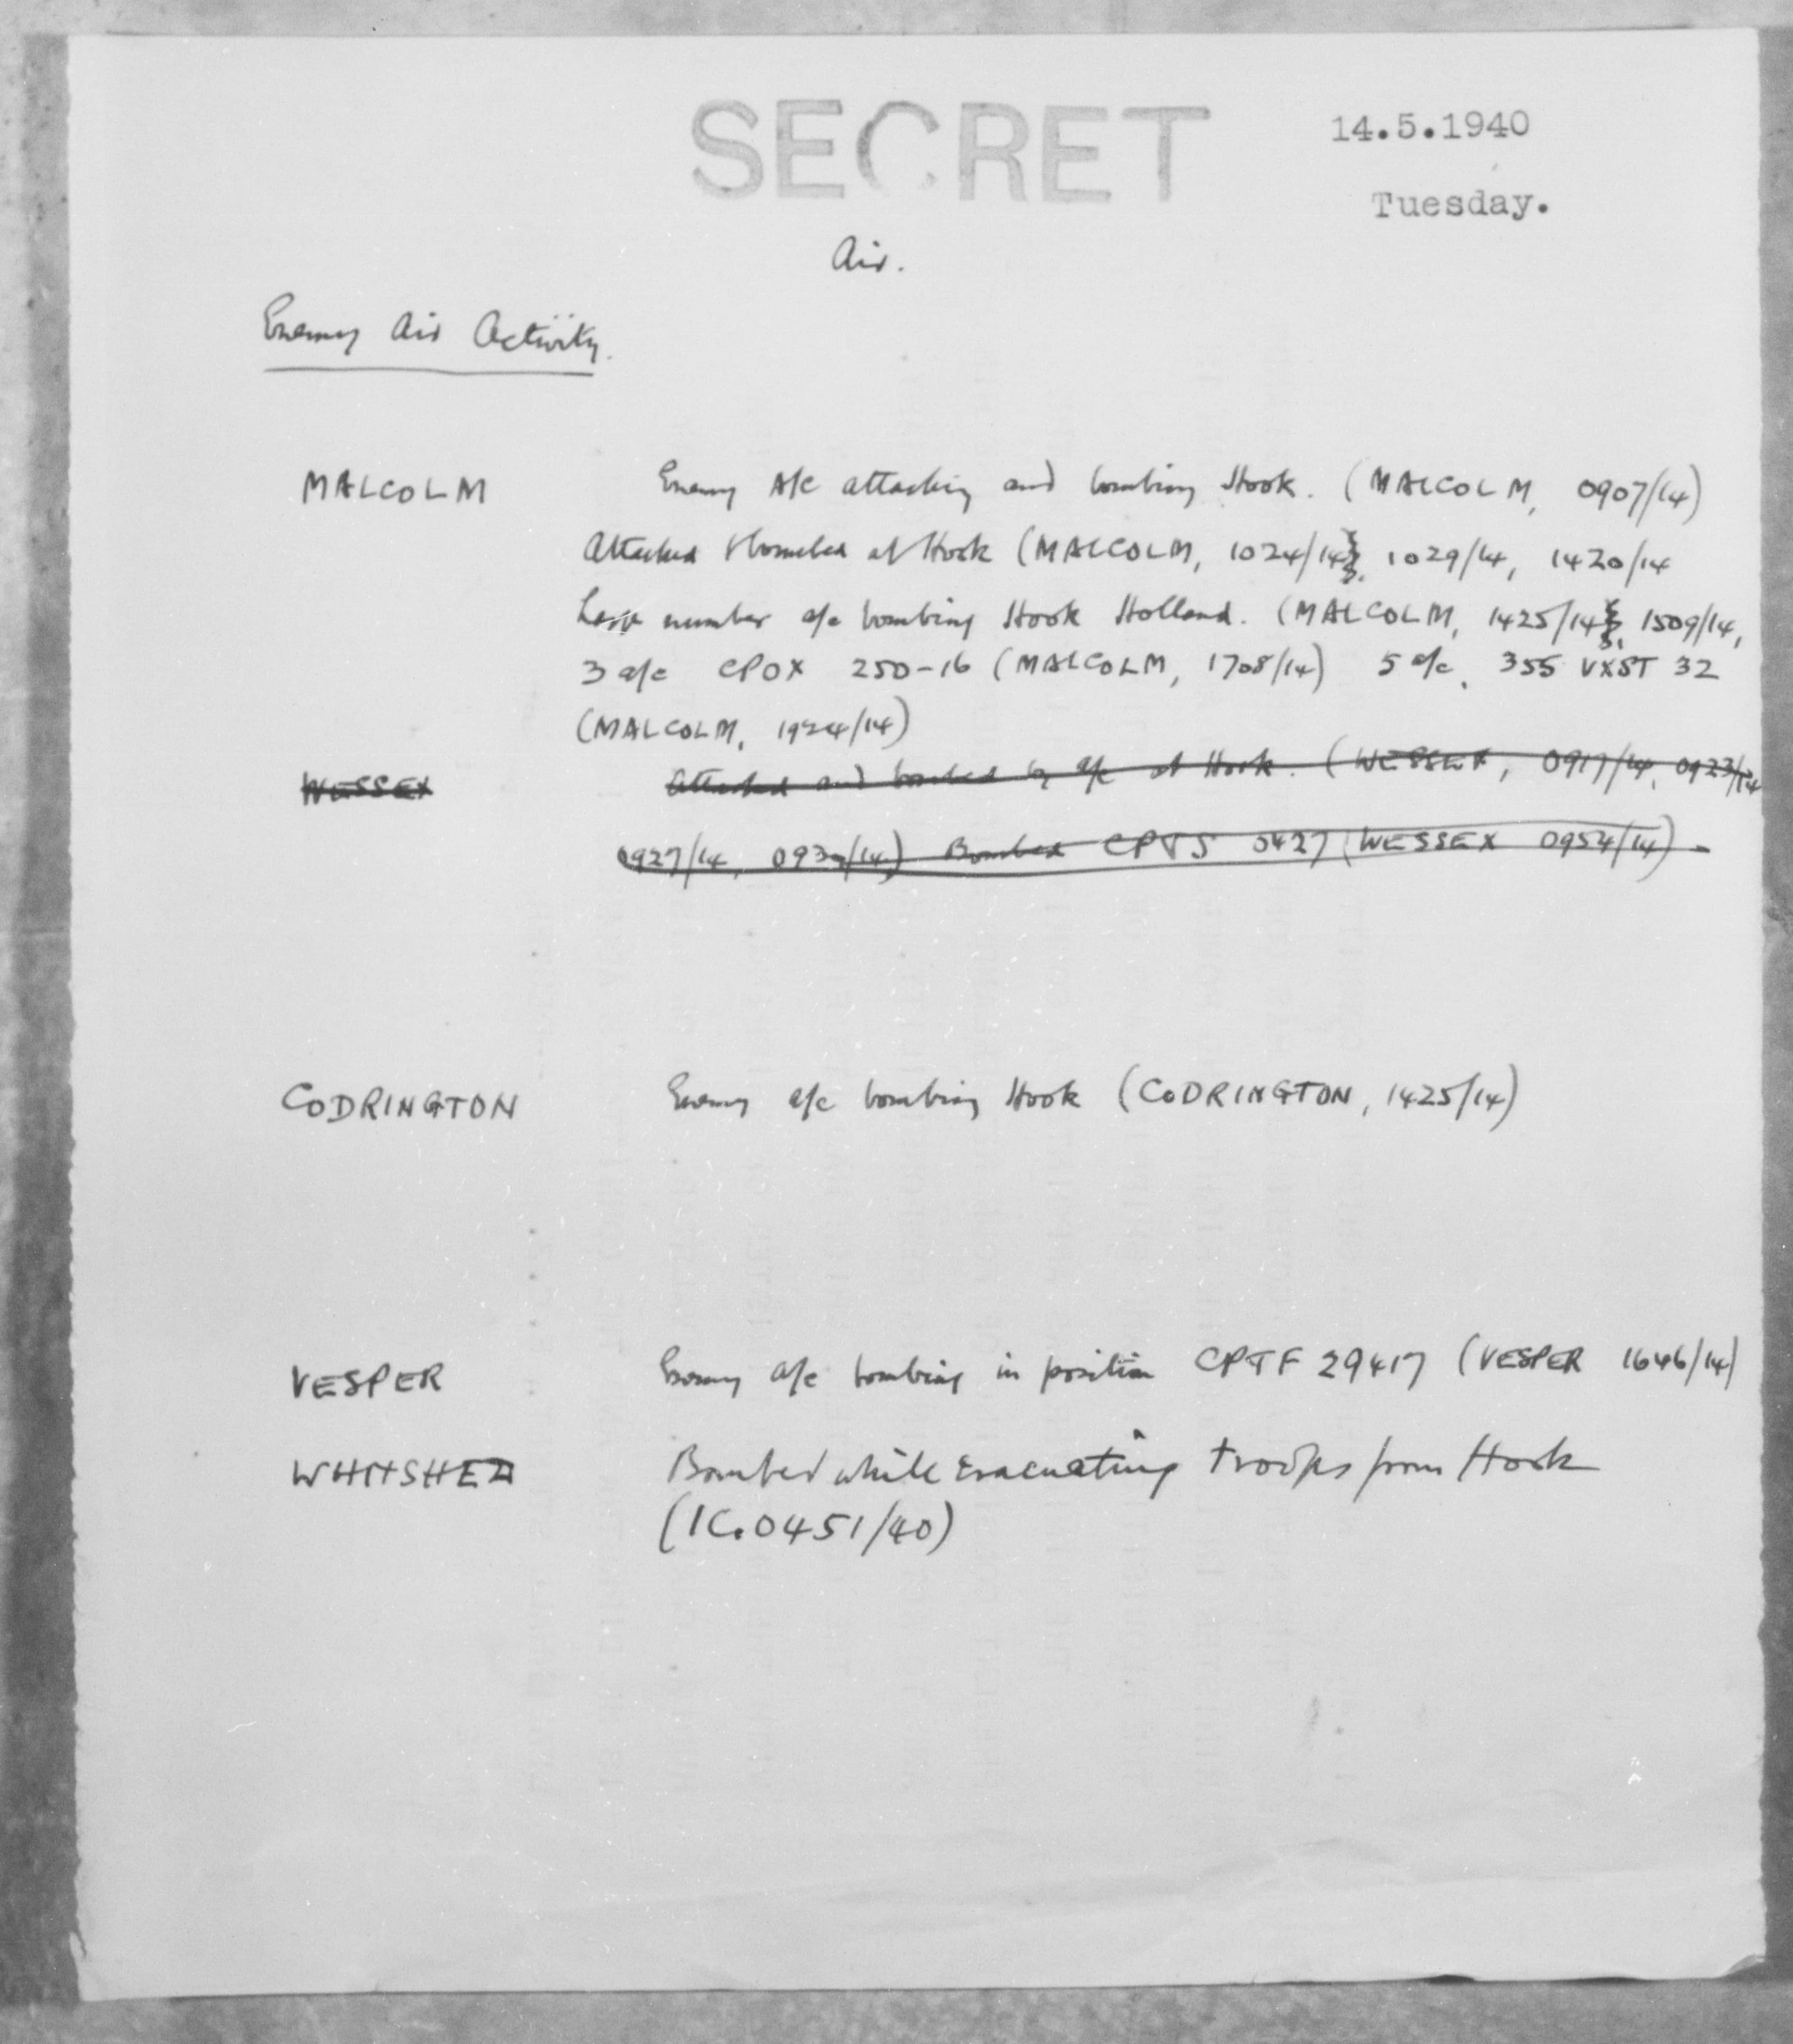 SECRET
14.5.1940
Tuesday.
Air.
Enemy Air Activity.
MALCOLM Enemy A/c attacking and bombing Hook. (MALCOLM, 0907/14)
Attacked & bombed at Hook (MALCOLM, 1024/14, 1029/14, 1420/14
Large number a/c bombing Hook Holland. (MALCOLM, 1425/14, 1509/14,
3 a/c CPOX 250-16 (MALCOLM, 1708/14) 5 a/c, 355 VXST 32
(MALCOLM, 1924/14)
WESSEX Attacked and bombed by a/c at Hook. (WESSEX, 0917/14, 0923/14
0927/14, Bombed CPTS 0427 (WESSEX 0954/14)
CODRINGTON Enemy a/c bombing Hook (CODRINGTON, 1425/14)
VESPER Enemy a/c bombing in position CPTF 29417 (VESPER 1646/14)
WHITSHED Bombed while evacuating troops from Hook
(IC.0451/40)